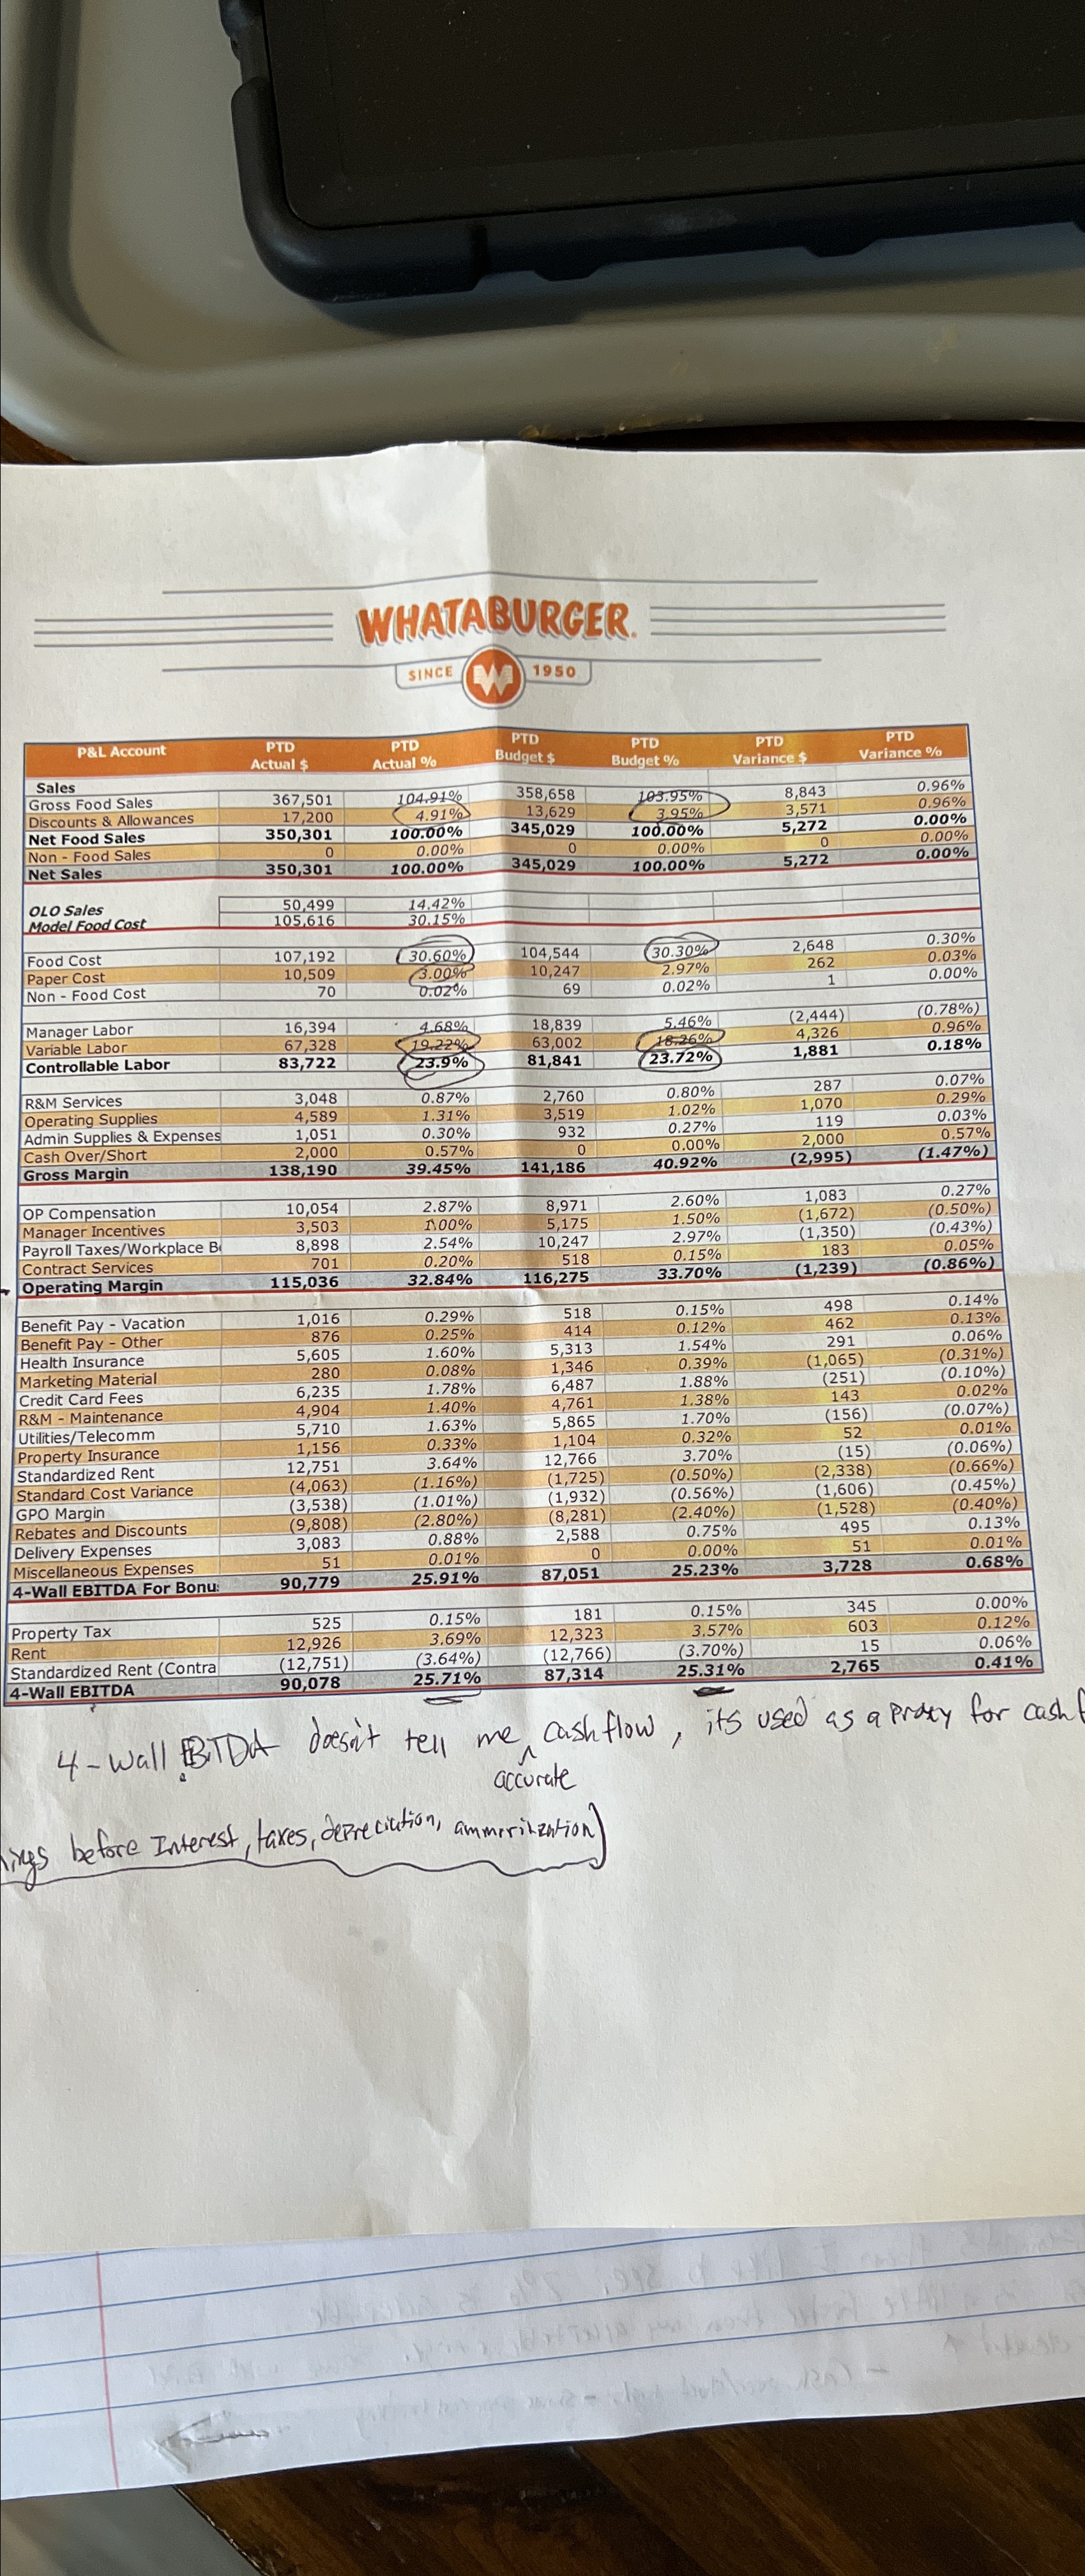 WHATABURGER
SINCE 1950
P&L Account PTD Actual $ PTD Actual % PTD Budget $ PTD Budget % PTD Variance $ PTD Variance %
Sales
Gross Food Sales 367,501 104.91% 358,658 103.95% 8,843 0.96%
Discounts & Allowances 17,200 4.91% 13,629 3.95% 3,571 0.96%
Net Food Sales 350,301 100.00% 345,029 100.00% 5,272 0.00%
Non - Food Sales 0 0.00% 0 0.00% 0 0.00%
Net Sales 350,301 100.00% 345,029 100.00% 5,272 0.00%
OLO Sales 50,499 14.42%
Model Food Cost 105,616 30.15%
Food Cost 107,192 30.60% 104,544 30.30% 2,648 0.30%
Paper Cost 10,509 3.00% 10,247 2.97% 262 0.03%
Non - Food Cost 70 0.02% 69 0.02% 1 0.00%
Manager Labor 16,394 4.68% 18,839 5.46% (2,444) (0.78%)
Variable Labor 67,328 19.22% 63,002 18.26% 4,326 0.96%
Controllable Labor 83,722 23.9% 81,841 23.72% 1,881 0.18%
R&M Services 3,048 0.87% 2,760 0.80% 287 0.07%
Operating Supplies 4,589 1.31% 3,519 1.02% 1,070 0.29%
Admin Supplies & Expenses 1,051 0.30% 932 0.27% 119 0.03%
Cash Over/Short 2,000 0.57% 0 0.00% 2,000 0.57%
Gross Margin 138,190 39.45% 141,186 40.92% (2,995) (1.47%)
OP Compensation 10,054 2.87% 8,971 2.60% 1,083 0.27%
Manager Incentives 3,503 1.00% 5,175 1.50% (1,672) (0.50%)
Payroll Taxes/Workplace B 8,898 2.54% 10,247 2.97% (1,350) (0.43%)
Contract Services 701 0.20% 518 0.15% 183 0.05%
Operating Margin 115,036 32.84% 116,275 33.70% (1,239) (0.86%)
Benefit Pay - Vacation 1,016 0.29% 518 0.15% 498 0.14%
Benefit Pay - Other 876 0.25% 414 0.12% 462 0.13%
Health Insurance 5,605 1.60% 5,313 1.54% 291 0.06%
Marketing Material 280 0.08% 1,346 0.39% (1,065) (0.31%)
Credit Card Fees 6,235 1.78% 6,487 1.88% (251) (0.10%)
R&M - Maintenance 4,904 1.40% 4,761 1.38% 143 0.02%
Utilities/Telecomm 5,710 1.63% 5,865 1.70% (156) (0.07%)
Property Insurance 1,156 0.33% 1,104 0.32% 52 0.01%
Standardized Rent 12,751 3.64% 12,766 3.70% (15) (0.06%)
Standard Cost Variance (4,063) (1.16%) (1,725) (0.50%) (2,338) (0.66%)
GPO Margin (3,538) (1.01%) (1,932) (0.56%) (1,606) (0.45%)
Rebates and Discounts (9,808) (2.80%) (8,281) (2.40%) (1,528) (0.40%)
Delivery Expenses 3,083 0.88% 2,588 0.75% 495 0.13%
Miscellaneous Expenses 51 0.01% 0 0.00% 51 0.01%
4-Wall EBITDA For Bonu 90,779 25.91% 87,051 25.23% 3,728 0.68%
Property Tax 525 0.15% 181 0.15% 345 0.00%
Rent 12,926 3.69% 12,323 3.57% 603 0.12%
Standardized Rent (Contra (12,751) (3.64%) (12,766) (3.70%) 15 0.06%
4-Wall EBITDA 90,078 25.71% 87,314 25.31% 2,765 0.41%
4-Wall EBITDA doesn't tell me accurate cashflow, its used as a proxy for cash f
before Interest, taxes, depreciation, ammoritization)